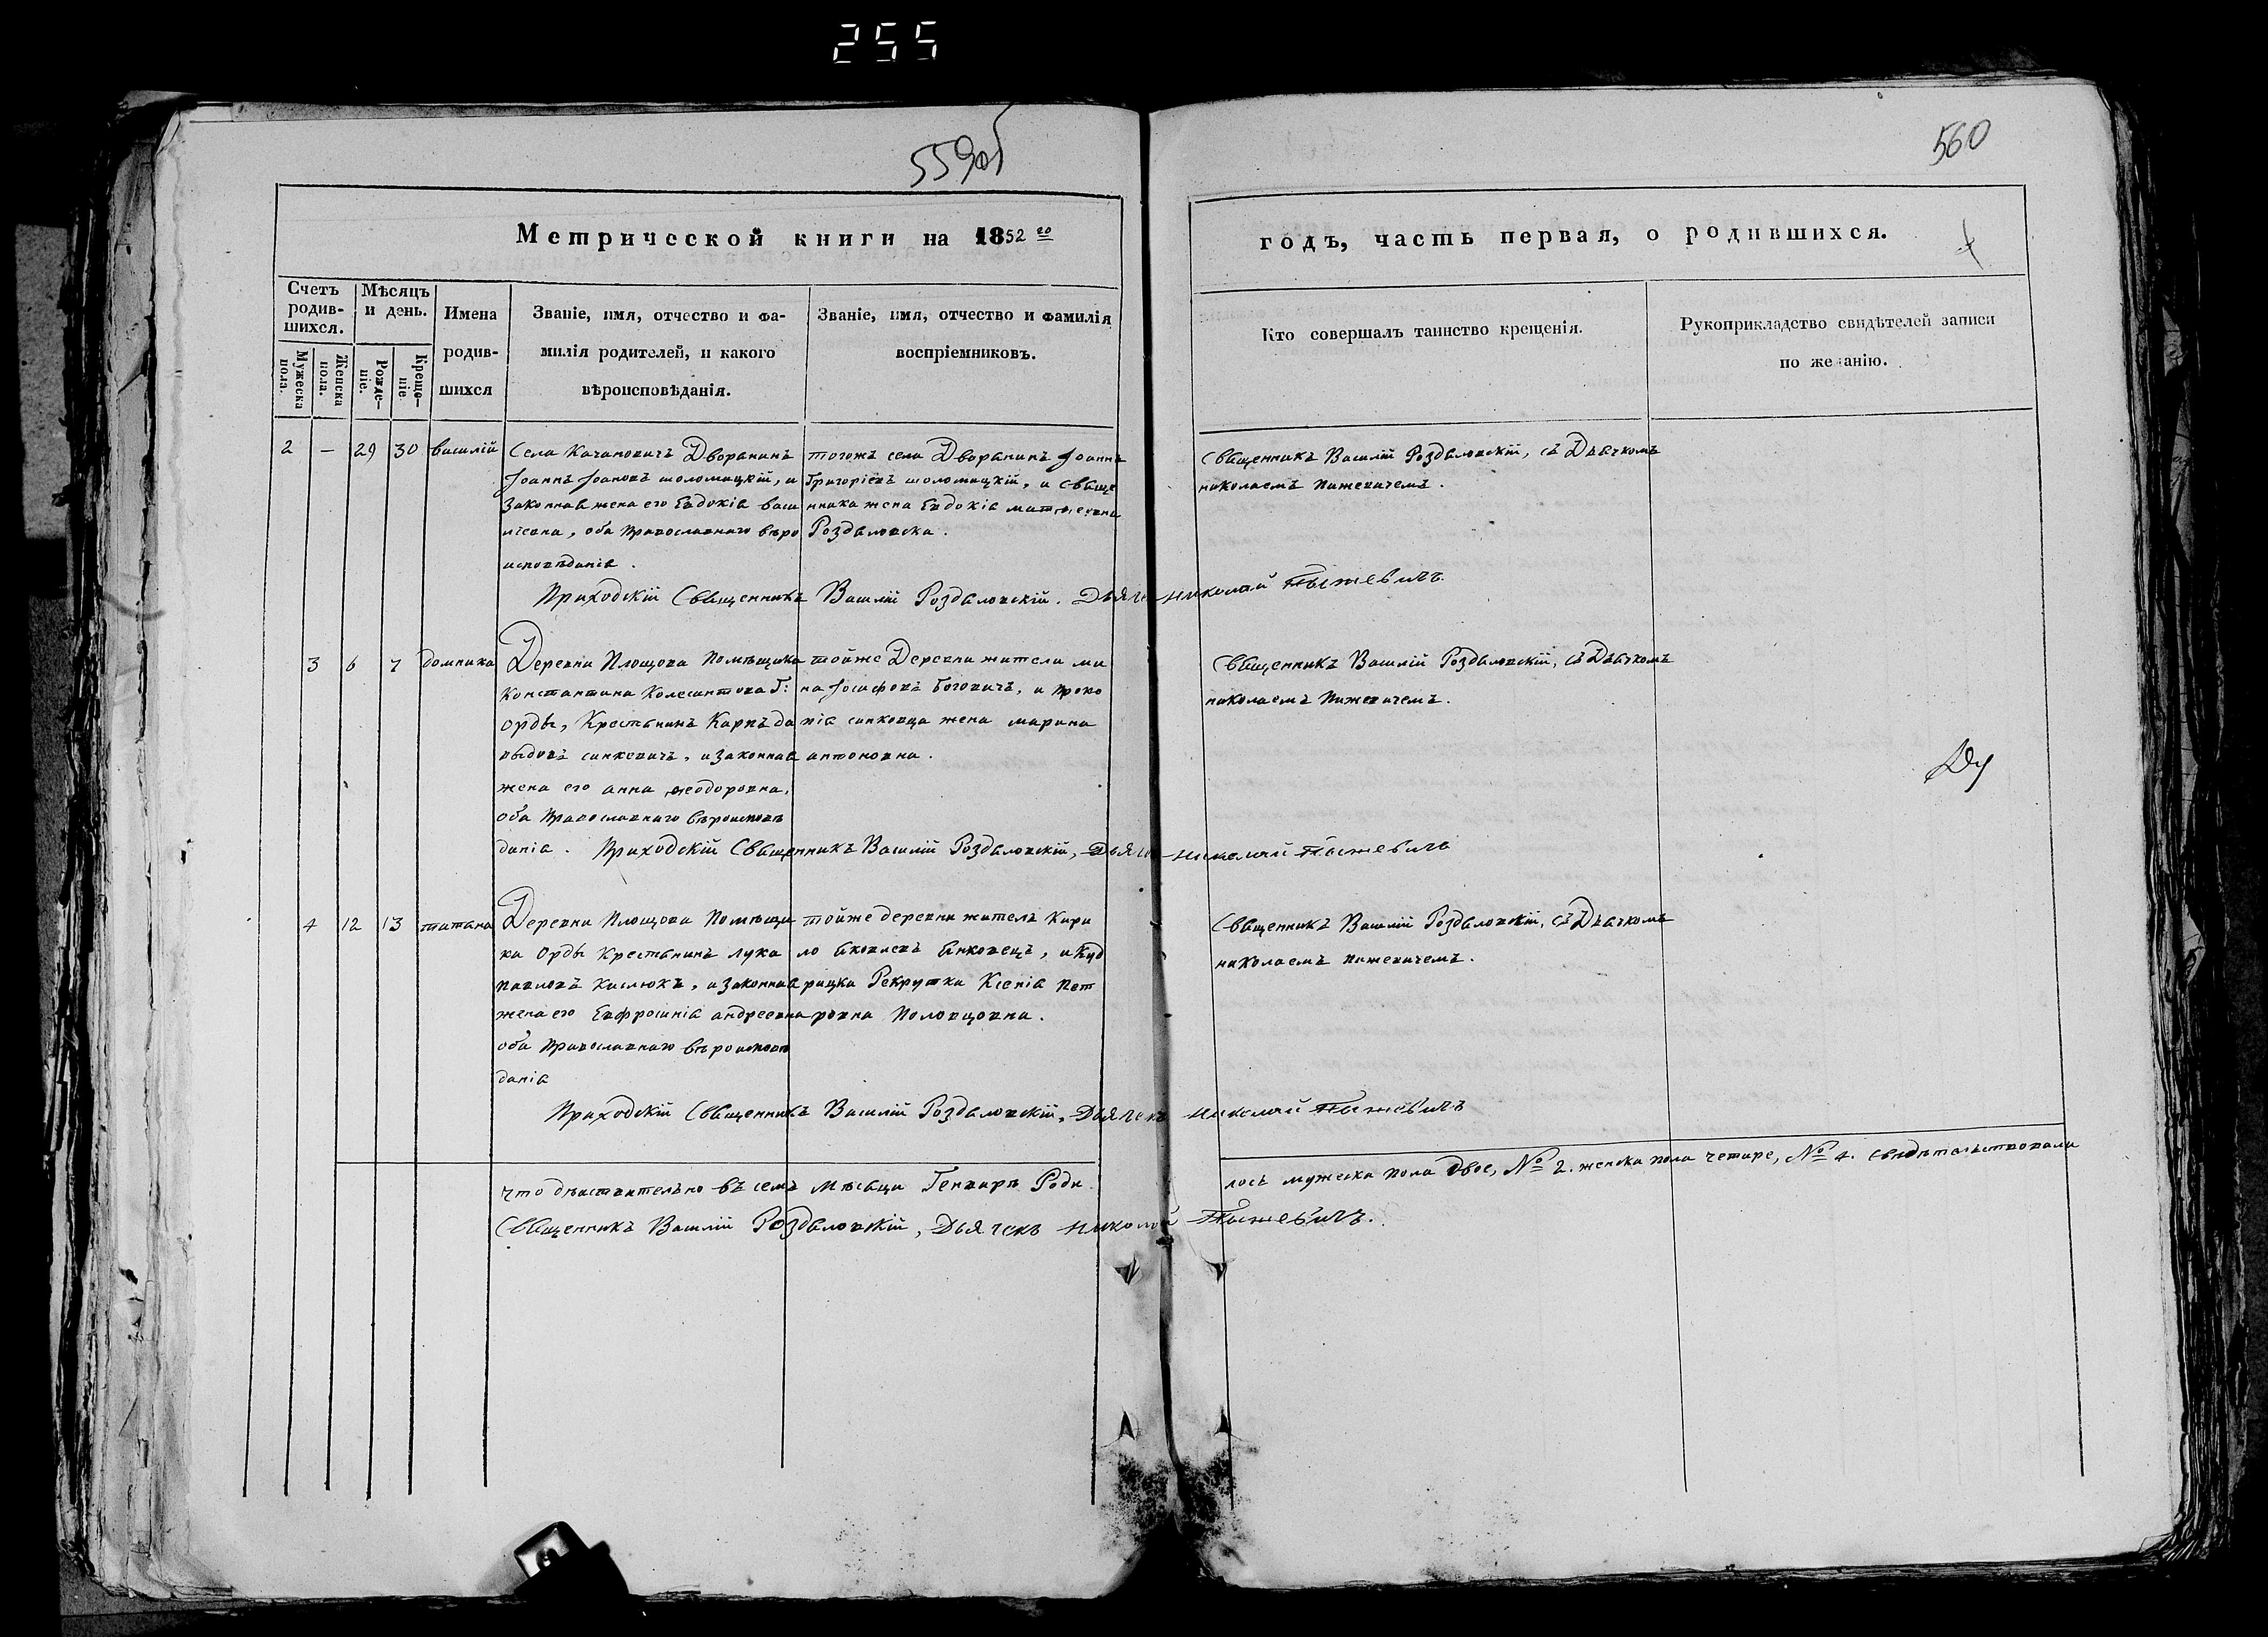 255
559об
560
Метрической книги на 1852го
годъ, часть первая, о родившихся.
Счетъ родив-шихся.
Мужеска пола.
Женска пола.
Мѣсяцъ и день.
Рожде-ніе.
Креще-ніе.
Имена
родив-
шихся
Званіе, имя, отчество и фа-
милія родителей, и какого
вѣроисповѣданія.
Званіе, имя, отчество и фамилія
воспріемниковъ.
Кто совершалъ таинство крещенія.
Рукоприкладство свидѣтелей записи
по желанію.
2 — 29 30 василій
Села Качановичъ Дворянинъ
Іоаннъ Іоановъ шоломицкій, и
Законная жена его Евдокія васи
лиевна, оба Православнаго вѣро
исповѣданія.
тогожъ села Дворянинъ Іоаннъ
Григоріевъ шоломицкій, и свяще
нника жена Евдокія матѳеевна
Роздяловска.
Священникъ Василій Роздяловскій, съ Дьячкомъ
николаемъ Пижевичемъ.
Приходскій Священникъ Василій Роздяловскій. Дьячекъ николай Пыжевичъ.
3 6 7 домника
Деревни Площова Помѣщика
Константина Колесантова Г:
Орды, Крестьянинъ Карпъ да
выдовъ синкевичъ, и законная
жена его анна ѳеодоровна,
оба Православнаго вѣроисповѣ
данія.
тойже Деревни жители ми
на Іосифовъ Боговичъ, и Проко
пія синковца жена марина
антоновна.
Священникъ Василій Роздяловскій, съ Дьячкомъ
николаемъ Пижевичемъ.
Приходскій Священникъ Василій Роздяловскій, Дьячекъ николай Пыжевичъ
4 12 13 татяна
Деревни Площова Помѣщи
ка Орды Крестьянинъ лука
павловъ Кислюкъ, и законная
жена его Евфросинія андреевна
оба Православнаго вѣроисповѣ
данія
тойже деревни жителъ Кири
ло яковлевъ янковецъ, и Куд
рицка Рекрутка Ксенія Пет
ровна Половцовна.
Священникъ Василій Роздяловскій, съ Дьячкомъ
николаемъ пижевичемъ.
Приходскій Священникъ Василій Роздяловскій, Дьячекъ николай Пыжевичъ
что дѣйствительно въ семъ Мѣсяци Генварѣ Роди
лось мужеска пола двое, № 2. женска пола четире, № 4. свидѣтельствовали
Священникъ Василій Роздяловскій, Дьячекъ николай Пыжевичъ.